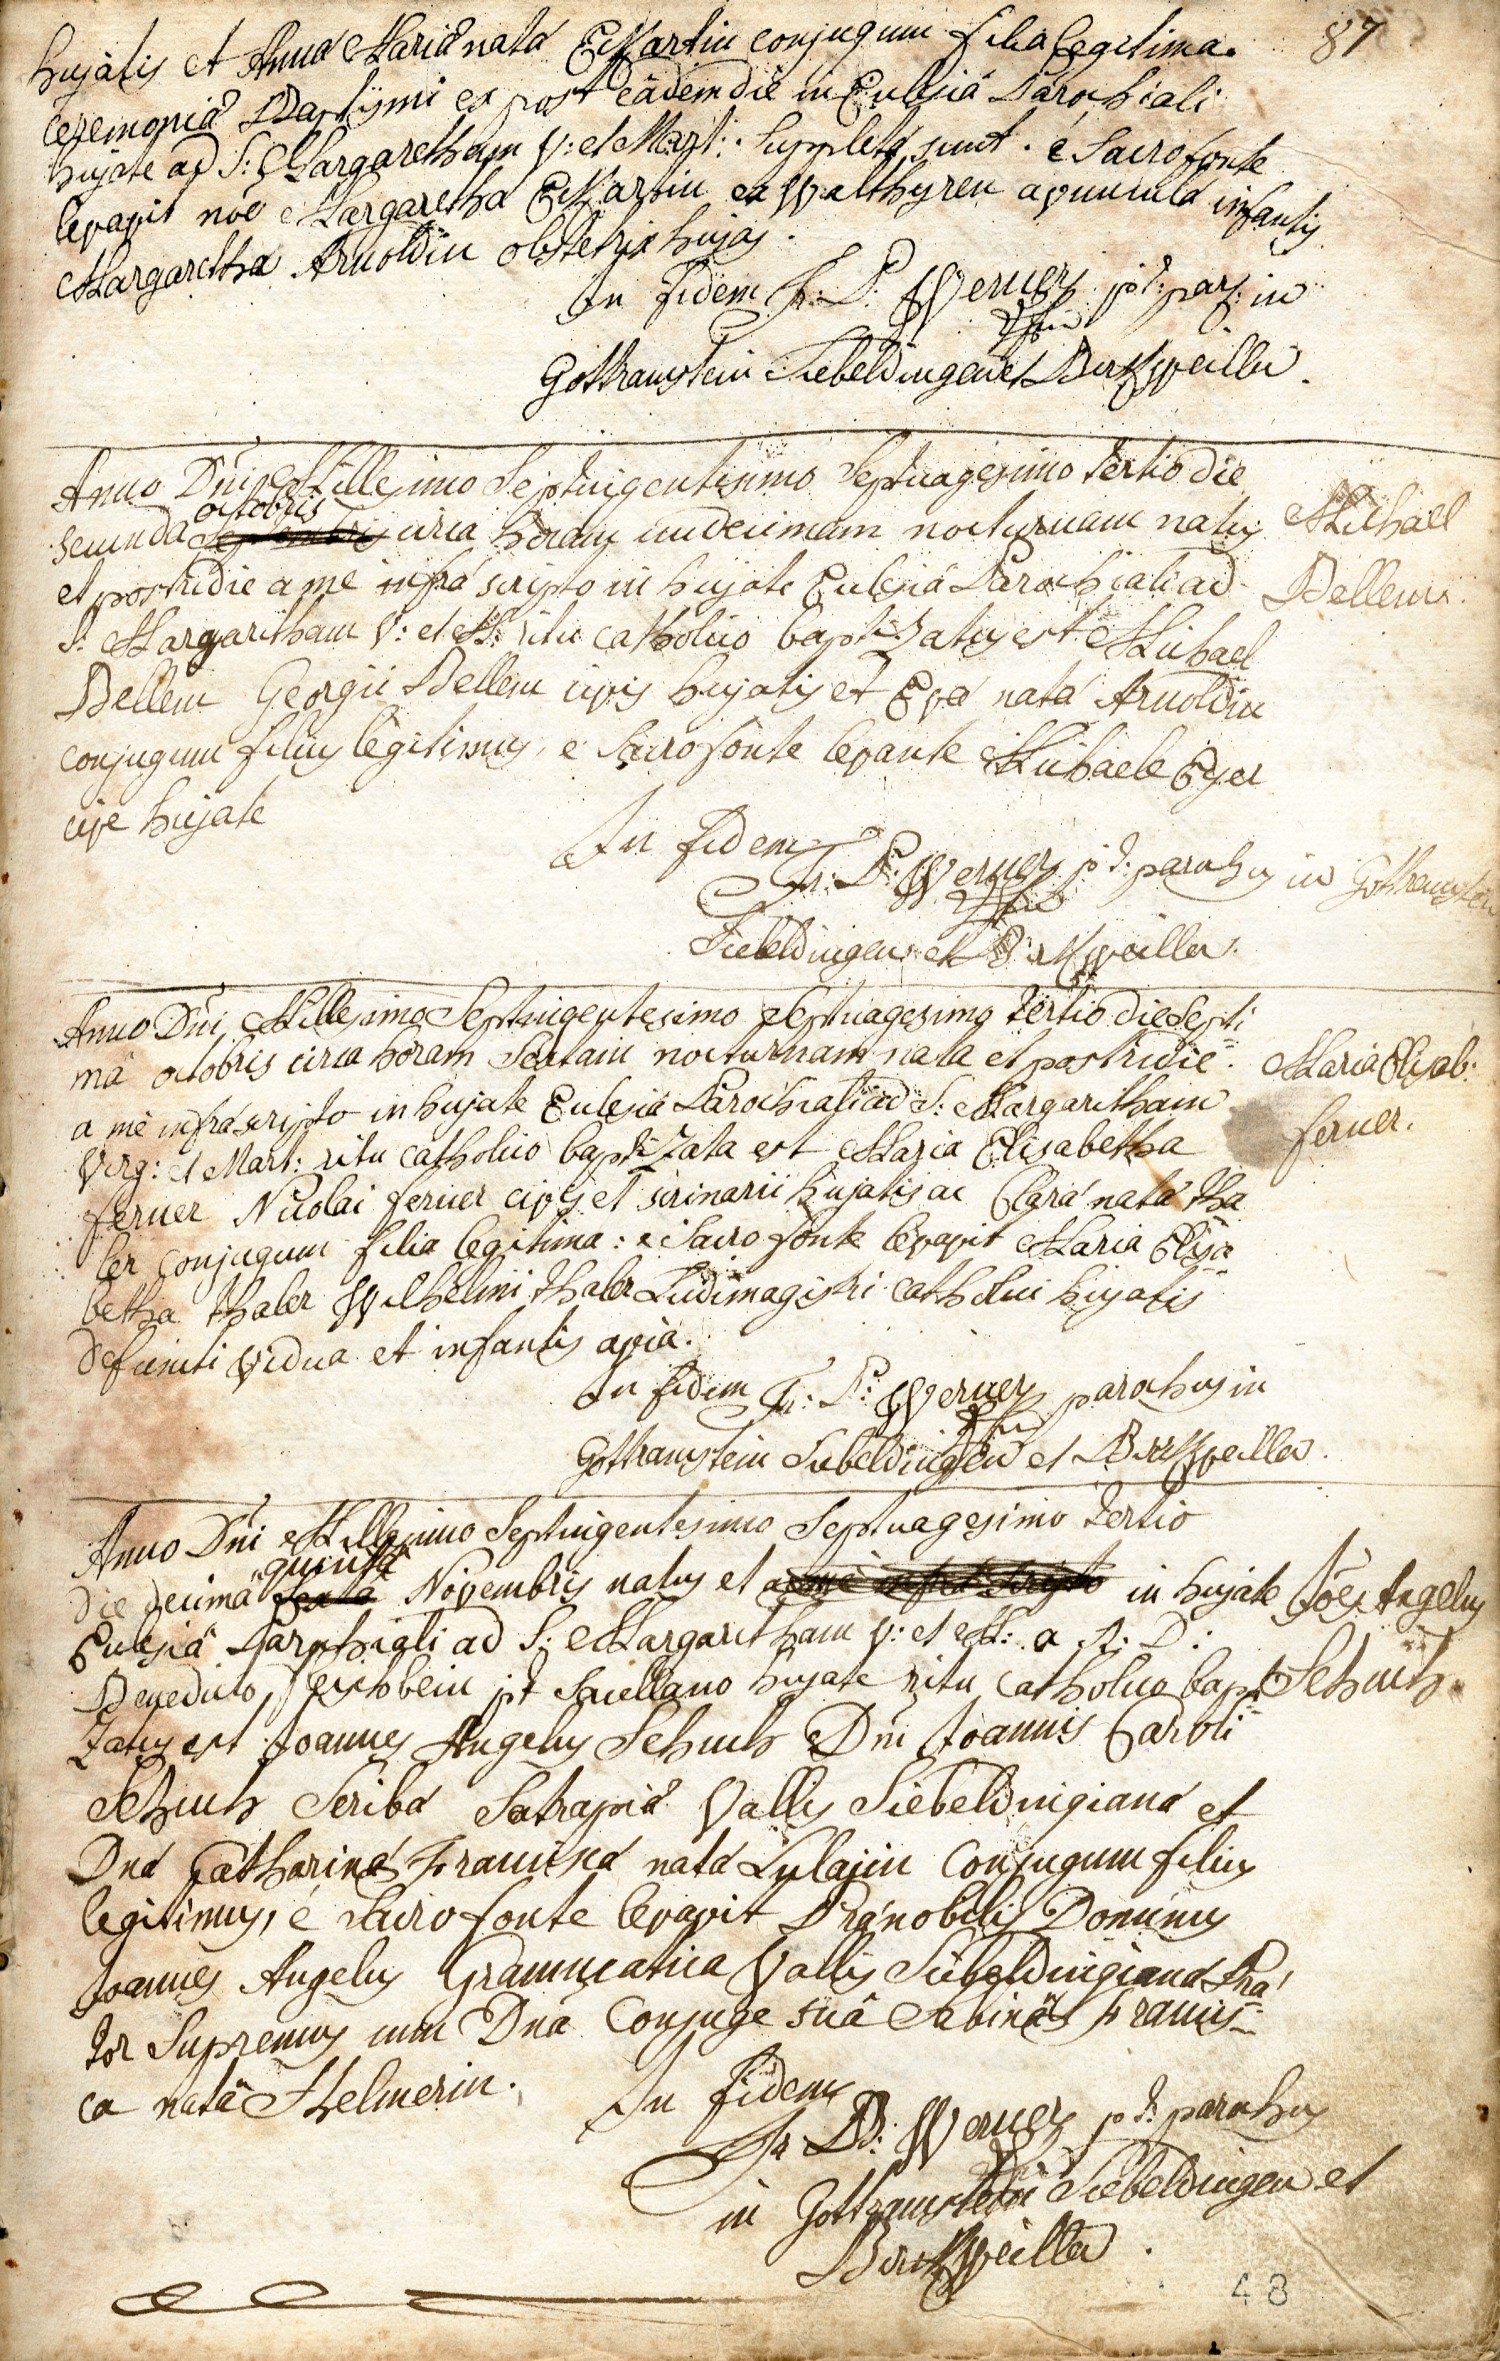 87
hujatis et Anna Maria nata Eckartin conjugum filia legitima.
ceremonia Baptismi ea post eâdem die in Ecclesiâ Parochiali
hujate ad S: Margaretham V: et Mart: suppleta sunt. è sacro fonte
levavit noē Margaretha Eckartin ex Walthyren avuncula infantis
Margaretha Arnoldin obstetrix hujas.
In fidem Fr: P: Werner p.t: par: in
Gottramstein Siebeldingen et Birkweiller.
Anno Dñi Millesimo Septuigentesimo Septuagesimo tertio die
octobris
secunda Septembris circa horam undecimam nocturnam natus
et postridie a me infrá scripto in hujate Ecclesiâ Parochiali ad
S: Margaritham V: et M: ritu catholico baptizatus est Michael
Bellem Georgii Bellem civis hujatis et Eva nata Arnoldin
conjugum filius legitimus, è sacro fonte levante Michaele Eyer
cive hujate
Michael
Bellem.
In fidem
Fr: P: Werner p.t: parochus in Gottramstein
Siebeldingen et Birkweiller.
Anno Dñi Millesimo Septuigentesimo Septuagesimo tertio die Septi
mâ octobris circa horam Sextam nocturnam nata et postridie
a me infrá scripto in hujate Ecclesiâ Parochiali ad S: Margaritham
Virg: et Mart: ritu catholico baptizata est Maria Elisabetha
ferner Nicolai ferner civis et scrinarii hujatis ac Clará natá tha
ler conjugum filia legitima: è sacro fonte levavit Maria Elisa
betha thaler Wilhelmi thaler Ludimagistri catholici hujatis
defuncti vidua et infantis avia.
Maria Elisab:
ferner.
In fidem Fr: P: Werner parochus in
Gottramstein Siebeldingen et Birkweiller.
Anno Dñi Millesimo Septuigentesimo Septuagesimo tertio
quinta
die decima sexta Novembris natus et a me infra scripto in hujate
Ecclesiâ Parochiali ad S: Margaritham V: et M: a R: D:
Benedicto p.t Sacellano hujate ritu catholico bapti
zatus est Joannes Angelus Schuch Dñi Joannis Caroli
Schuch Scriba Satrapia Vallis Siebeldingiana et
Dná Catharina Francisca natá Lulajin Conjugum filius
legitimus, è sacro fonte levavit Pránobilis Dominus
Joannes Angelus Grammatica Vallis Siebeldingiana Prá
tor Supremus cum Dná Conjuge suâ Sabinâ Francis
ca natâ Helmerin.
Jōes Angelus
Schuch.
In fidem
Fr P: Werner p.t: parochus
in Gottramstein Siebeldingen et
Birkweiller.
48